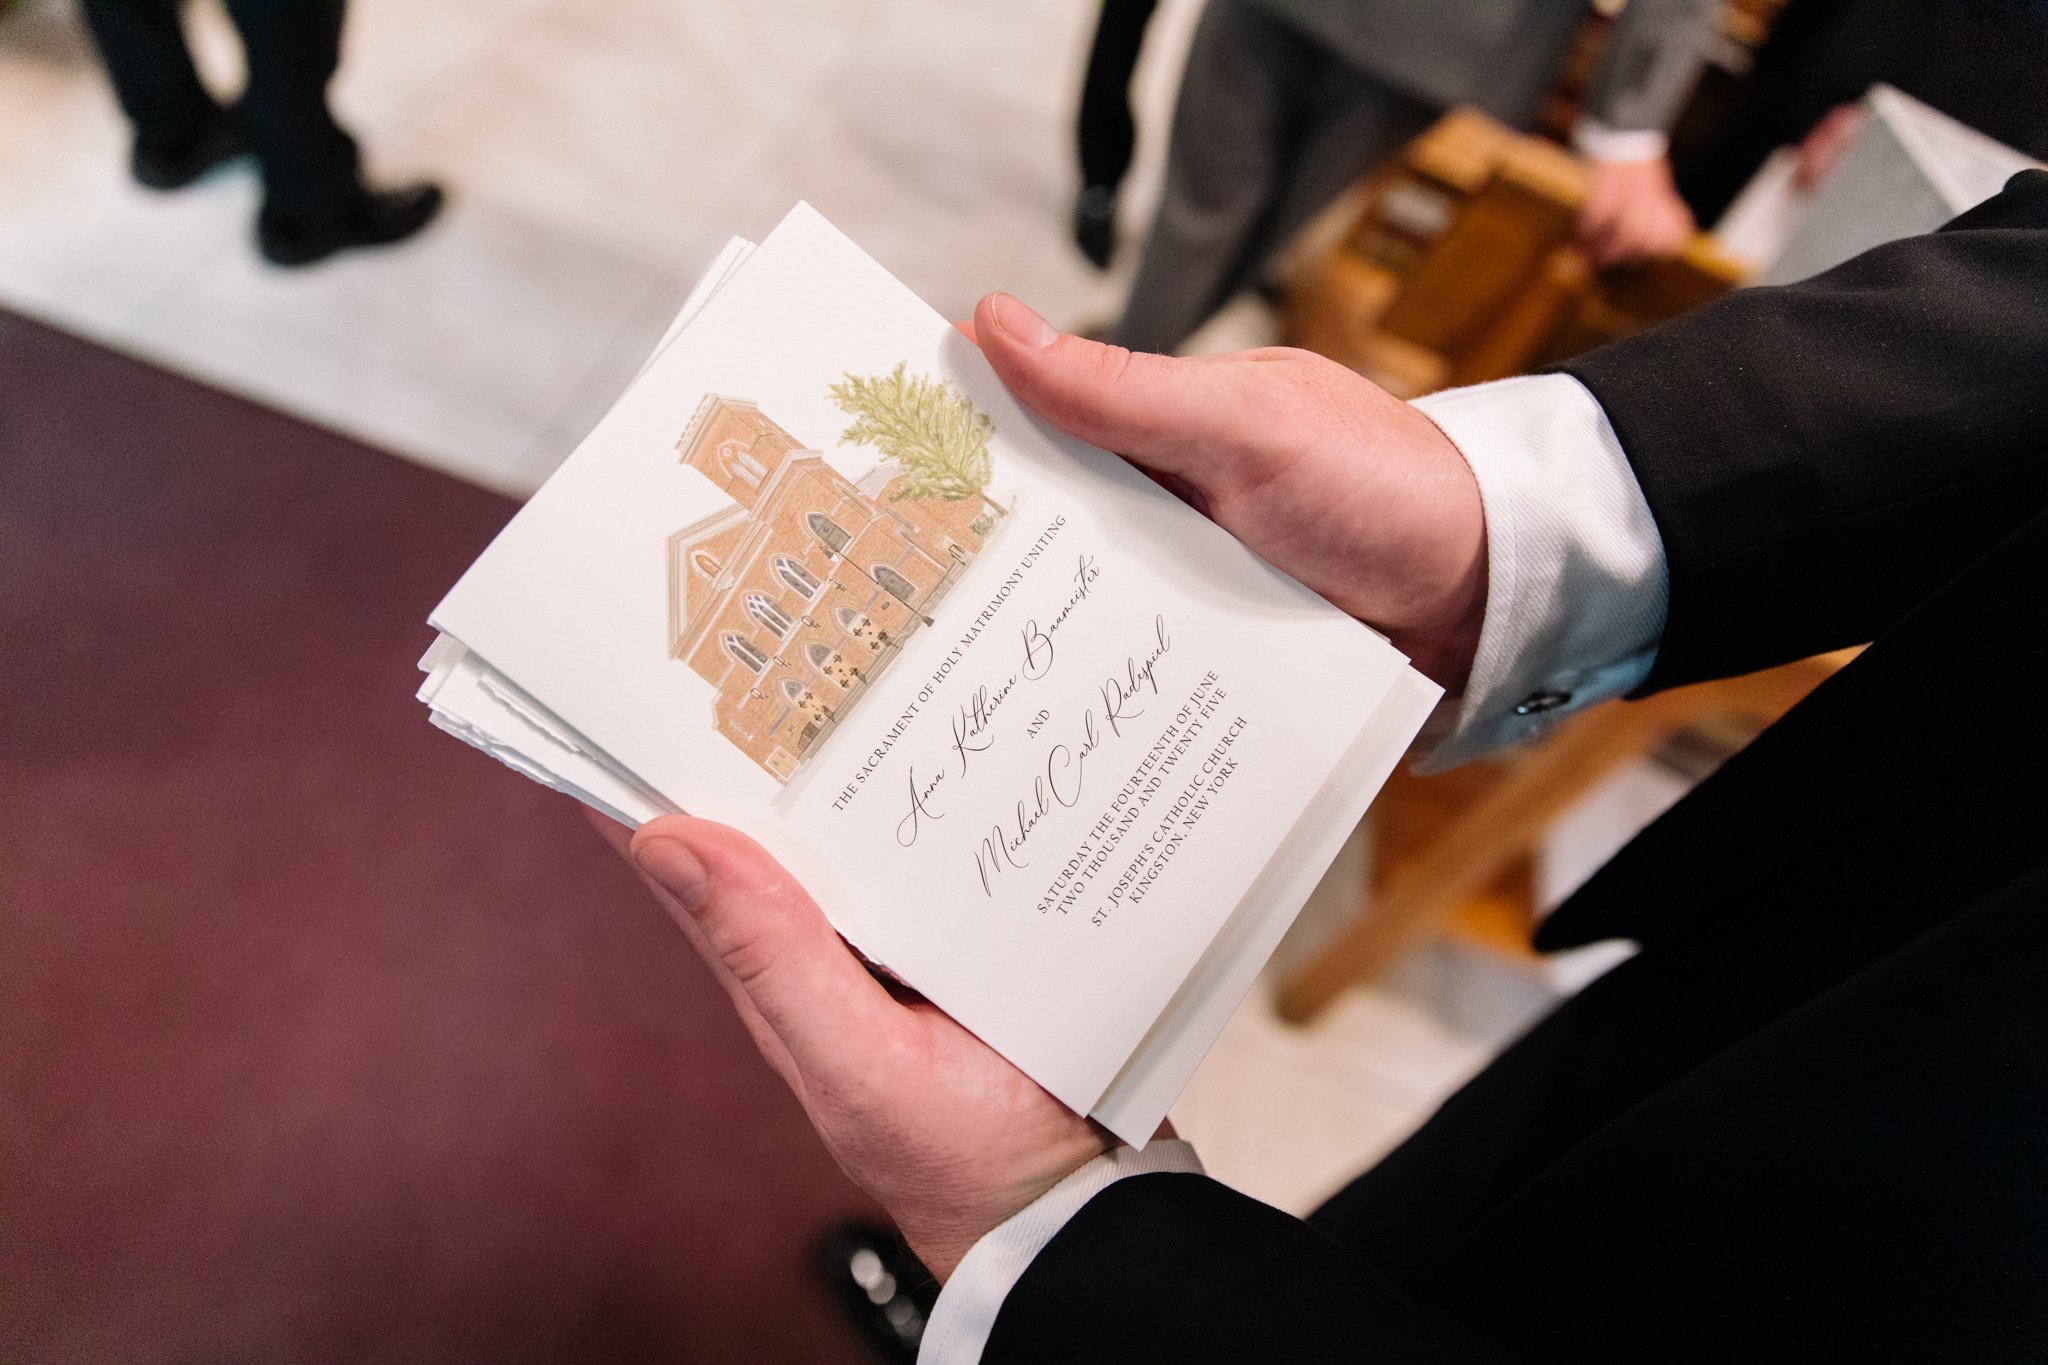 THE SACRAMENT OF HOLY MATRIMONY UNITING
Anna Katherine Baumeister
AND
Michael Carl Radespiel
SATURDAY THE FOURTEENTH OF JUNE
TWO THOUSAND AND TWENTY FIVE
ST. JOSEPH'S CATHOLIC CHURCH
KINGSTON, NEW YORK